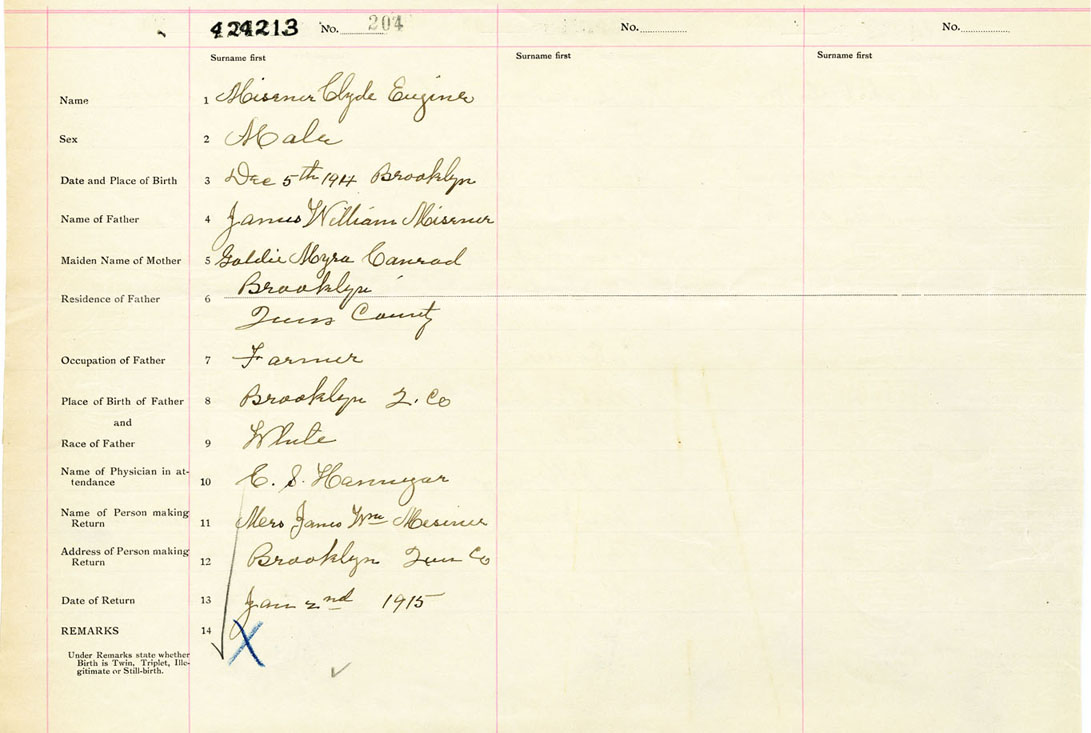 424213 No. 204 No. No.
Surname first Surname first Surname first
Name 1 Misener Clyde Eugine
Sex 2 Male
Date and Place of Birth 3 Dec 5th 1914 Brooklyn
Name of Father 4 James William Misener
Maiden Name of Mother 5 Goldie Myra Conrad
Brooklyn
Residence of Father 6
County
Occupation of Father 7 Farmer
Place of Birth of Father 8 Brooklyn Q. Co
and
Race of Father 9 White
Name of Physician in at-
tendance 10 C. S.
Name of Person making
Return 11 Mrs James Wm Misener
Address of Person making
Return 12 Brooklyn Co
Date of Return 13 Jan 2nd 1915
REMARKS 14
Under Remarks state whether
Birth is Twin, Triplet, Ille-
gitimate or Still-birth.